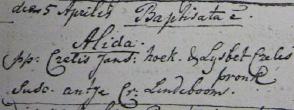 den 5 Aprilis Baptisata ē
Alida.
pp: Crelis Jans: hoek. & Lysbet Crelis
pronk
Susc. antje Cr. Lindeboom.